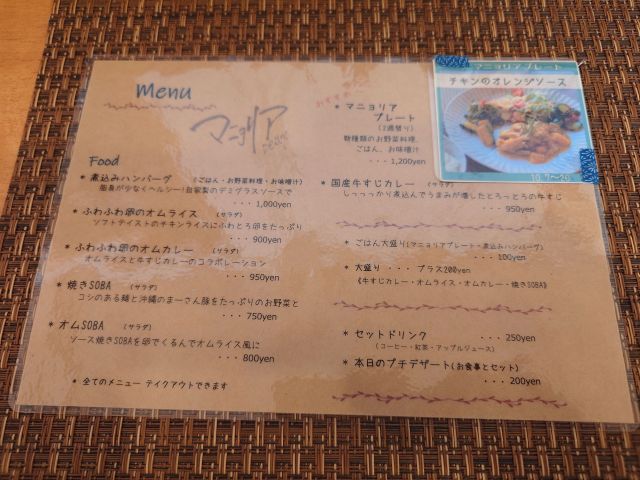 Menu
マニョリア
Food
* 煮込みハンバーグ (ごはん・お野菜料理・お味噌汁)
脂身が少なくヘルシー!自家製のデミグラスソースで
・・・1,000yen
* ふわふわ卵のオムライス (サラダ)
ソフトテイストのチキンライスにふわとろ卵をたっぷり
・・・900yen
* ふわふわ卵のオムカレー (サラダ)
オムライスと牛すじカレーのコラボレーション
・・・950yen
* 焼きSOBA (サラダ)
コシのある麺と沖縄のまーさん豚をたっぷりのお野菜と
・・・750yen
* オムSOBA (サラダ)
ソース焼きSOBAを卵でくるんでオムライス風に
・・・800yen
* 全てのメニュー テイクアウトできます
* マニョリア
プレート
(2週替り)
数種類のお野菜料理、
ごはん、お味噌汁
・・・1,200yen
マニョリアプレート
チキンのオレンジソース
10.7~20
* 国産牛すじカレー (サラダ)
しっっっかり煮込んでうまみが増したとろっとろの牛すじ
・・・950yen
* ごはん大盛り(マニョリアプレート・煮込みハンバーグ)
・・・100yen
* 大盛り ・・・ プラス200yen
《牛すじカレー・オムライス・オムカレー・焼きSOBA》
* セットドリンク ・・・ 250yen
(コーヒー・紅茶・アップルジュース)
* 本日のプチデザート(お食事とセット)
・・・200yen